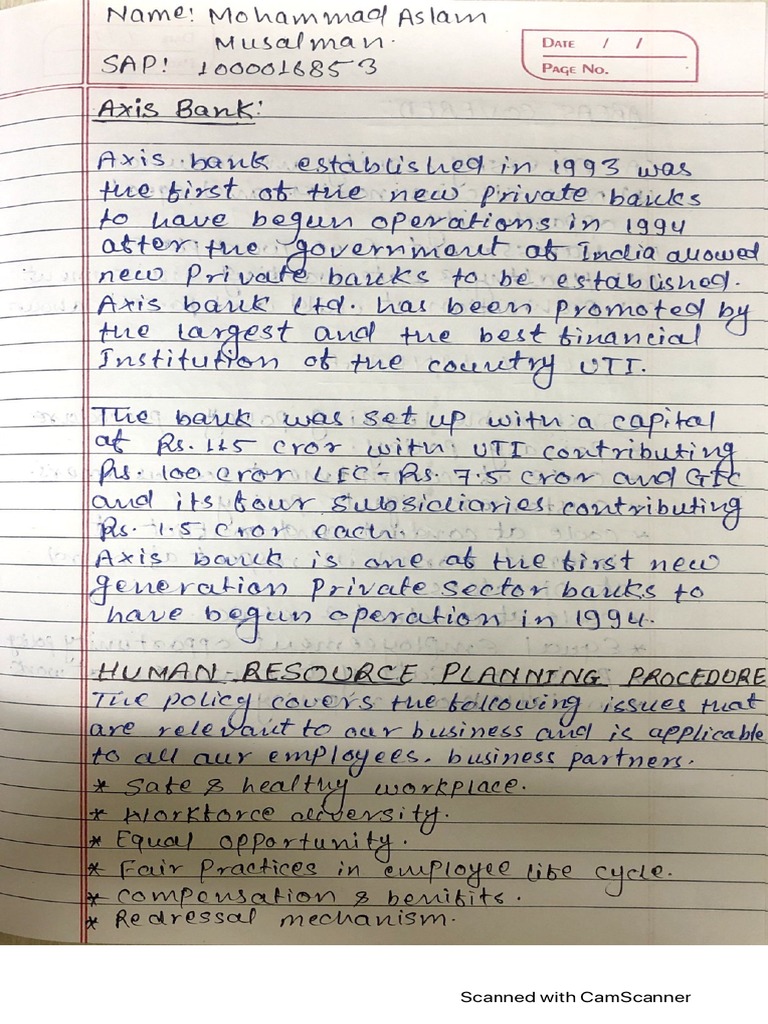 Name: Mohammad Aslam
Musalman.
SAP: 1000016853
DATE / /
PAGE NO.
Axis Bank:
Axis bank established in 1993 was
the first of the new private banks
to have begun operations in 1994
after the government of India allowed
new Private banks to be established.
Axis bank Ltd. has been promoted by
the largest and the best financial
Institution of the country UTI.
The bank was set up with a capital
of Rs. 115 cror with UTI contributing
Rs. 100 cror LIC - Rs. 7.5 cror and GIC
and its four subsidiaries contributing
Rs. 1.5 cror each.
Axis bank is one of the first new
generation Private sector banks to
have begun operation in 1994.
HUMAN RESOURCE PLANNING PROCEDURE
The policy covers the following issues that
are relevant to our business and is applicable
to all our employees. business partners.
* Safe & healthy workplace.
* Workforce diversity.
* Equal opportunity.
* Fair Practices in employee life cycle.
* compensation & benifits.
* Redressal mechanism.
Scanned with CamScanner